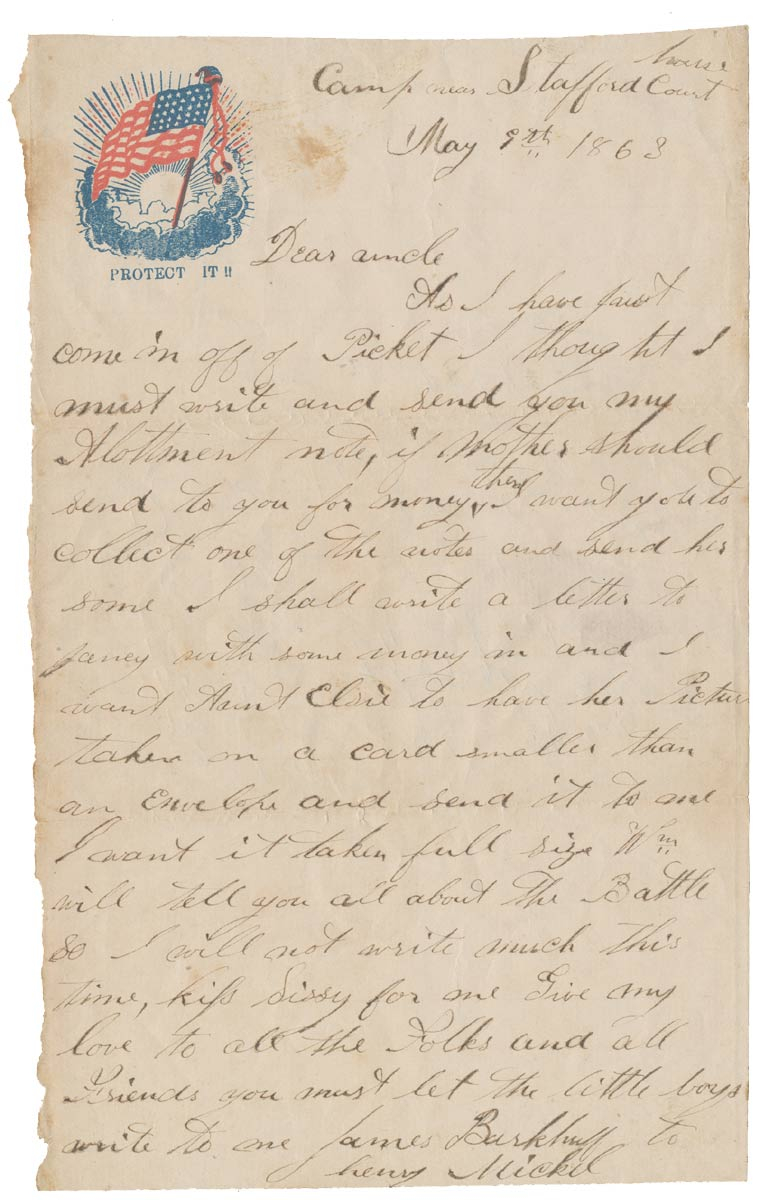 house
Camp near Stafford Court
May 9th 1863
PROTECT IT!!
Dear uncle
As I have just
come in off of Picket I thought I
must write and send you my
Alottment note, if Mother should
send to you for money, then I want you to
collect one of the notes and send her
some I shall write a letter to
Janey with some money in and I
want Aunt Elsie to have her Pictur
taken on a card smaller than
an Envelope and send it to me
I want it taken full size Wm
will tell you all about the Battle
so I will not write much this
time, kiss Sissy for me Give my
love to all the Folks and all
Friends you must let the little boys
write to me James Barkhuff to
henry Mickel